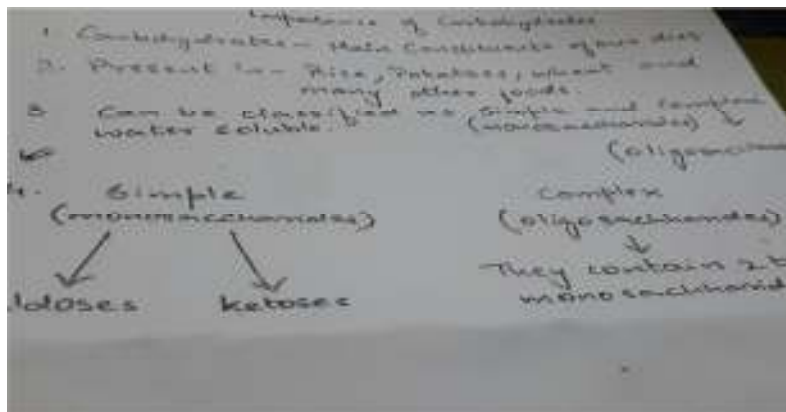 Importance of Carbohydrates
1. Carbohydrates - Main Constituents of our diet
2. Present in - Rice, Potatoes, wheat and
many other foods.
3 Can be classified as Simple and Complex
water soluble. (monosaccharides) ↓
(oligosaccha
4. Simple Complex
(monosaccharides) (oligosachharides)
↓
They contain 2 t
aldoses ketoses monosachharid